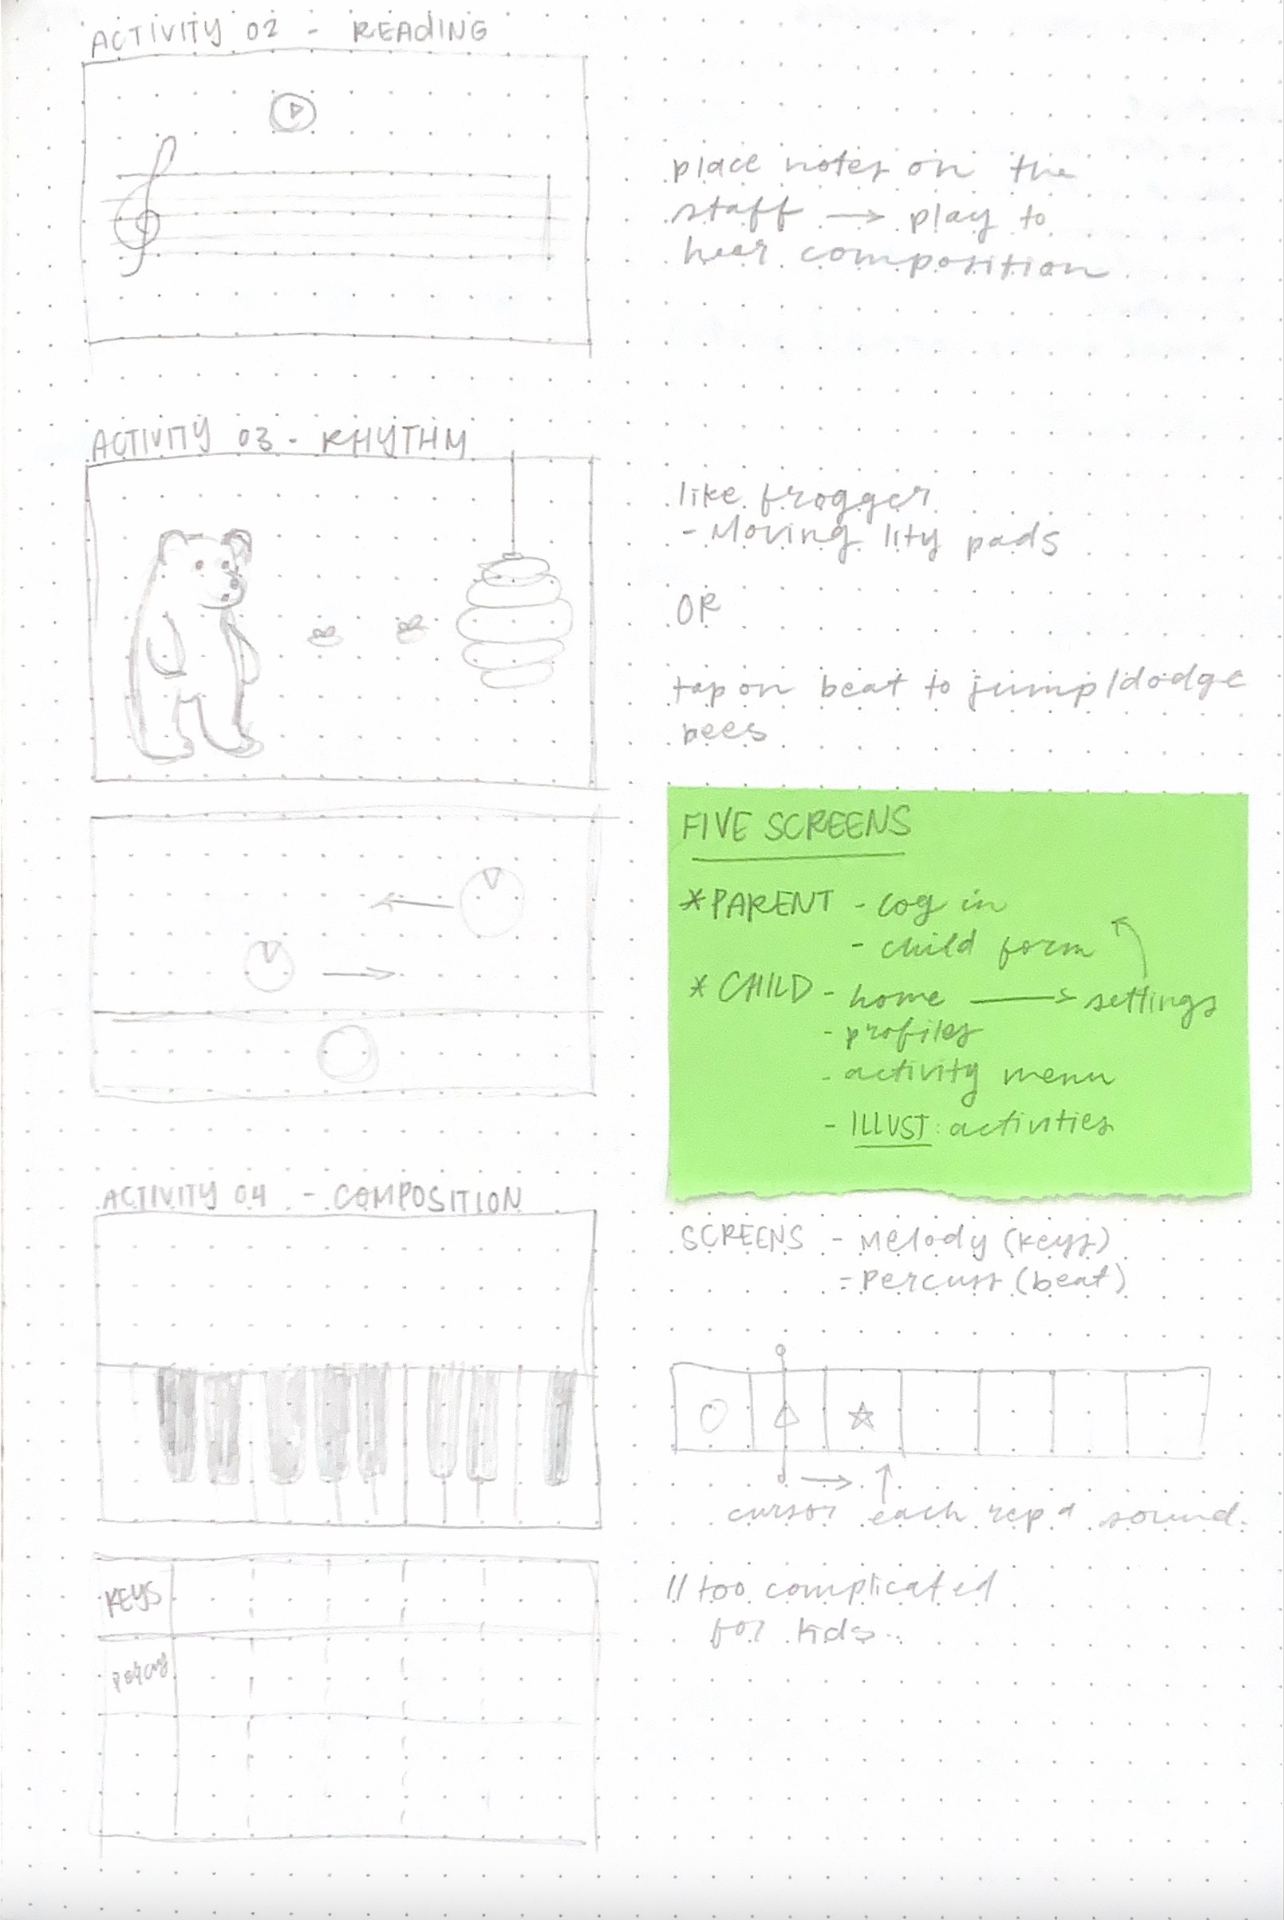 ACTIVITY 02 - READING
place notes on the
staff → play to
hear composition
ACTIVITY 03 - RHYTHM
like frogger
- Moving lity pads
OR
tap on beat to jump/dodge
bees
FIVE SCREENS
*PARENT - log in
- child form
*CHILD - home → settings
- profiles
- activity menu
- ILLUST: activities
ACTIVITY 04 - COMPOSITION
SCREENS - Melody (keys)
- Percuss (beat)
→ ↑
cursor each rep a sound.
KEYS
// too complicated
for kids..